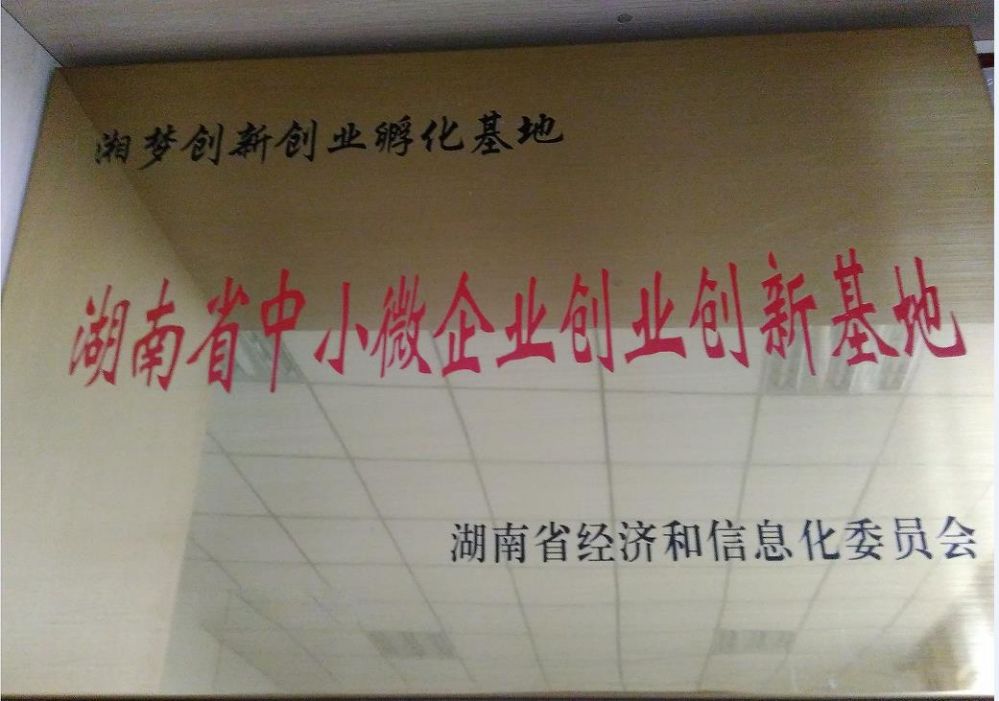 湘梦创新创业孵化基地
湖南省中小微企业创业创新基地
湖南省经济和信息化委员会